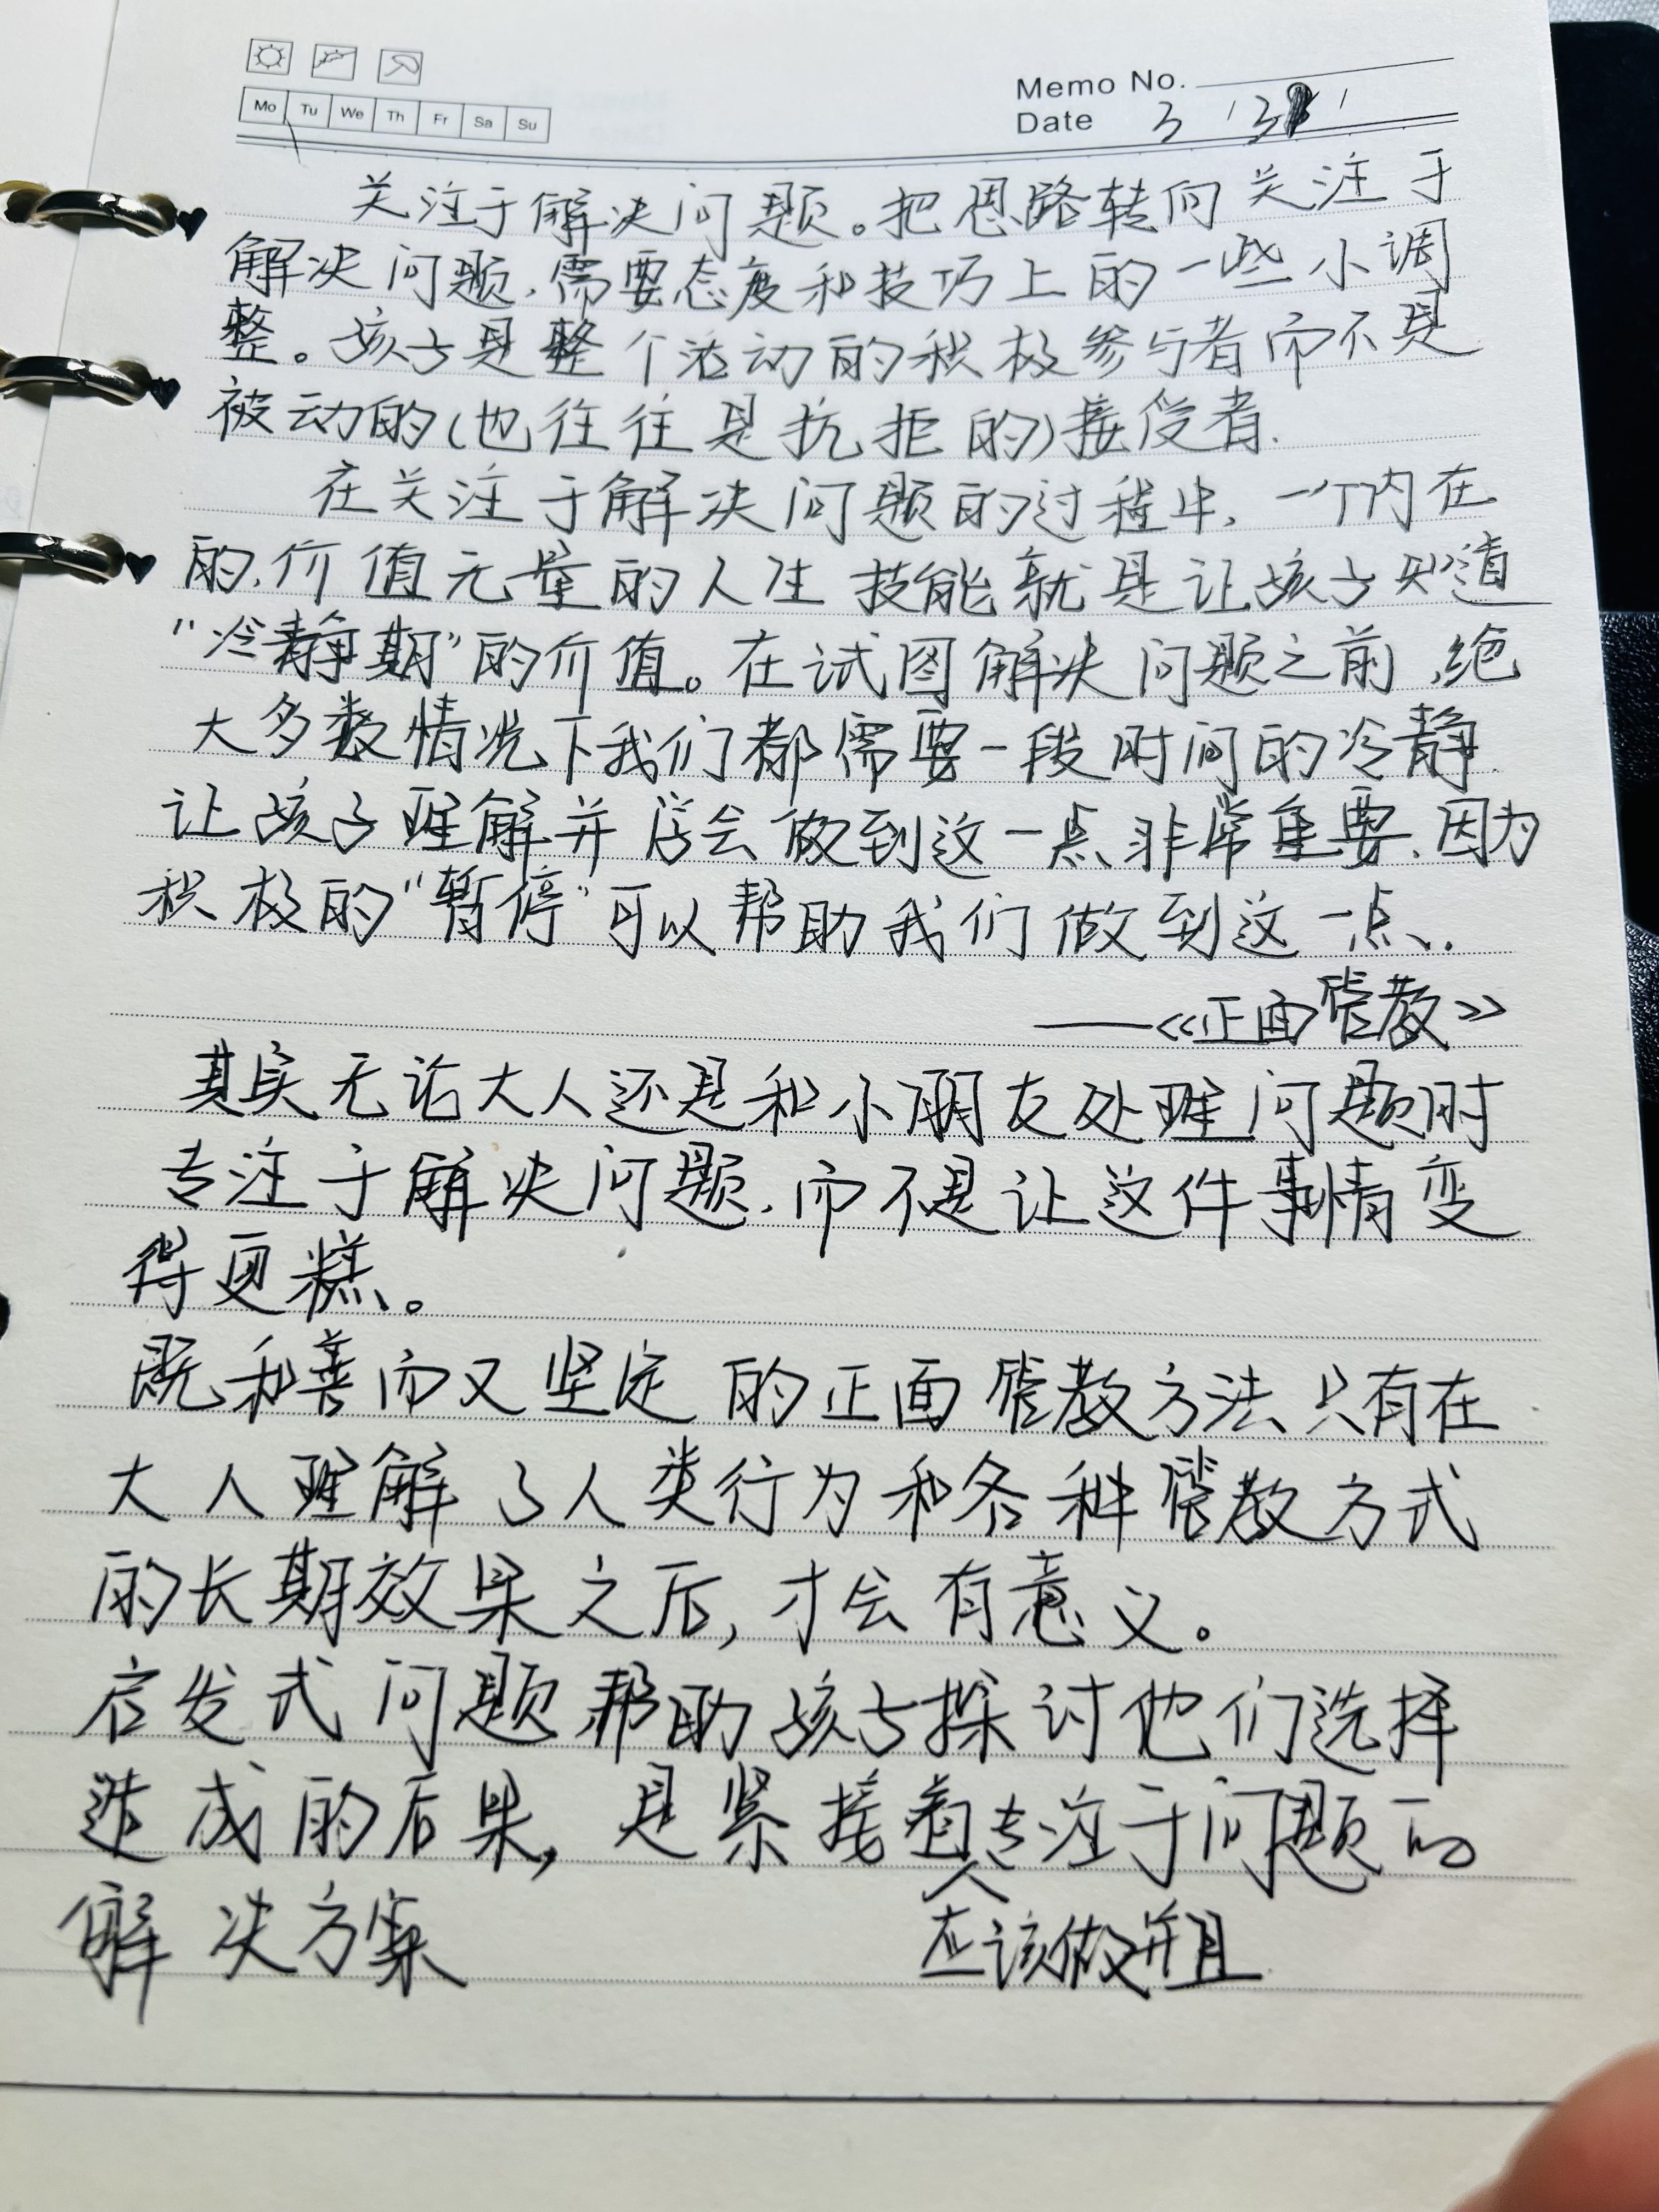 Mo Tu We Th Fr Sa Su
Memo No.
Date 3 '31'
关注于解决问题。把思路转向关注于
解决问题,需要态度和技巧上的一些小调
整。孩子是整个活动的积极参与者而不是
被动的(也往往是抗拒的)接受者.
在关注于解决问题的过程中,一个内在
的,价值无量的人生技能就是让孩子知道
“冷静期”的价值。在试图解决问题之前,绝
大多数情况下我们都需要一段时间的冷静.
让孩子理解并学会做到这一点非常重要,因为
积极的“暂停”可以帮助我们做到这一点.
——《正面管教》
其实无论大人还是和小朋友处理问题时
专注于解决问题,而不是让这件事情变
得更糕。
既和善而又坚定的正面管教方法只有在
大人理解了人类行为和各种管教方式
的长期效果之后,才会有意义。
启发式问题帮助孩子探讨他们选择
造成的后果,是紧接着专注于问题的
应该做并且
解决方案